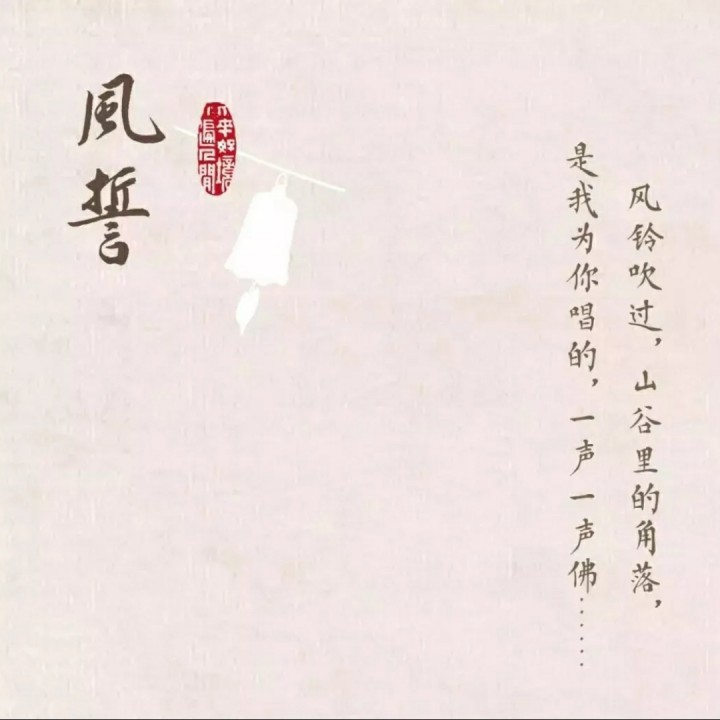 風誓
风铃吹过，山谷里的角落，
是我为你唱的，一声一声佛……